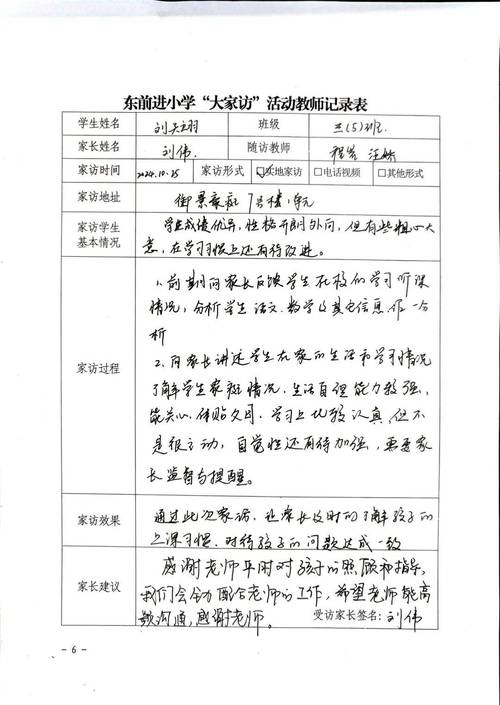 东前进小学“大家访”活动教师记录表
学生姓名 刘天翊 班级 三(5)班
家长姓名 刘伟 随访教师 程岩 汪娇
家访时间 2024.10.25 家访形式 ☑实地家访 □电话视频 □其他形式
家访地址 御景家庭 7号楼1单元
家访学生基本情况 学生成绩优异，性格开朗外向，但有些粗心大
意，在学习习惯上还有待改进。
家访过程
1.前期向家长反馈学生在校的学习听课
情况，分析学生语文.数学及其它信息作一分
析
2.向家长讲述学生在家的生活和学习情况
了解学生家庭情况.生活自理能力较强，
能关心、体贴父母.学习上比较认真,但不
是很主动，自觉性还有待加强，需要家
长监督与提醒。
家访效果 通过此次家访，让家长及时的了解孩子的
上课习惯.对待孩子的问题达成一致
家长建议 感谢老师平时对孩子的照顾和指导，
我们会全力配合老师的工作，希望老师能高
频沟通，感谢老师。
受访家长签名：刘伟
- 6 -